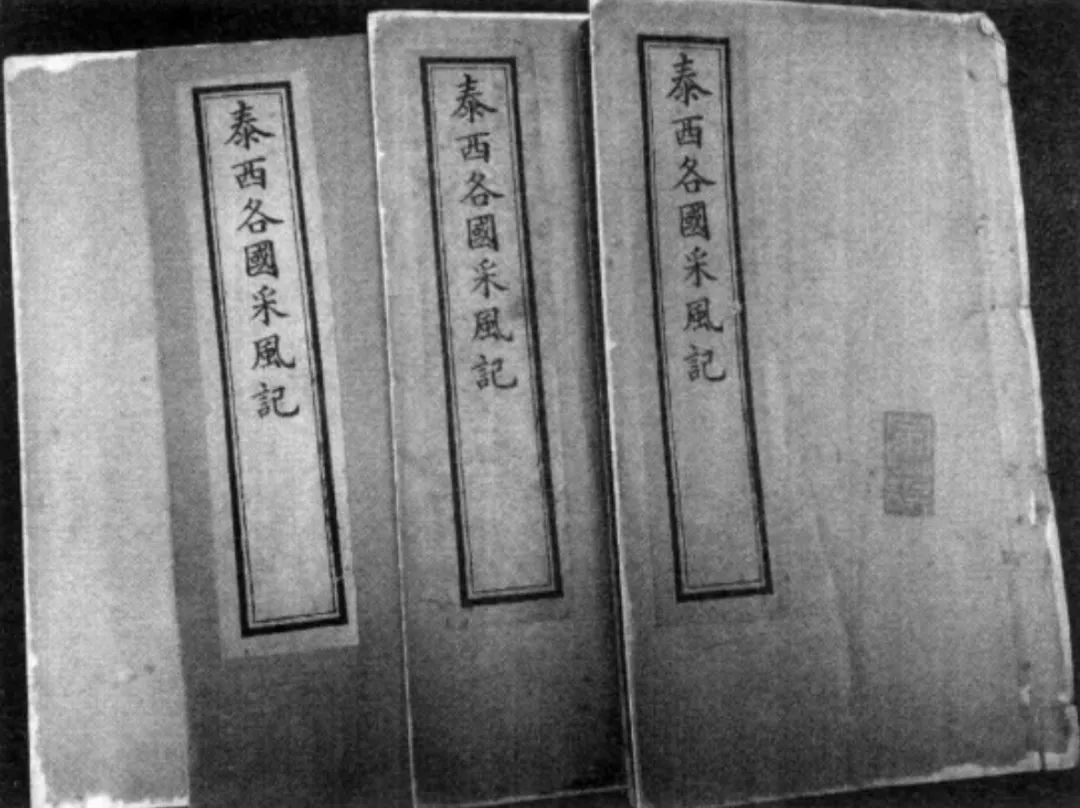 泰西各國采風記
泰西各國采風記
泰西各國采風記